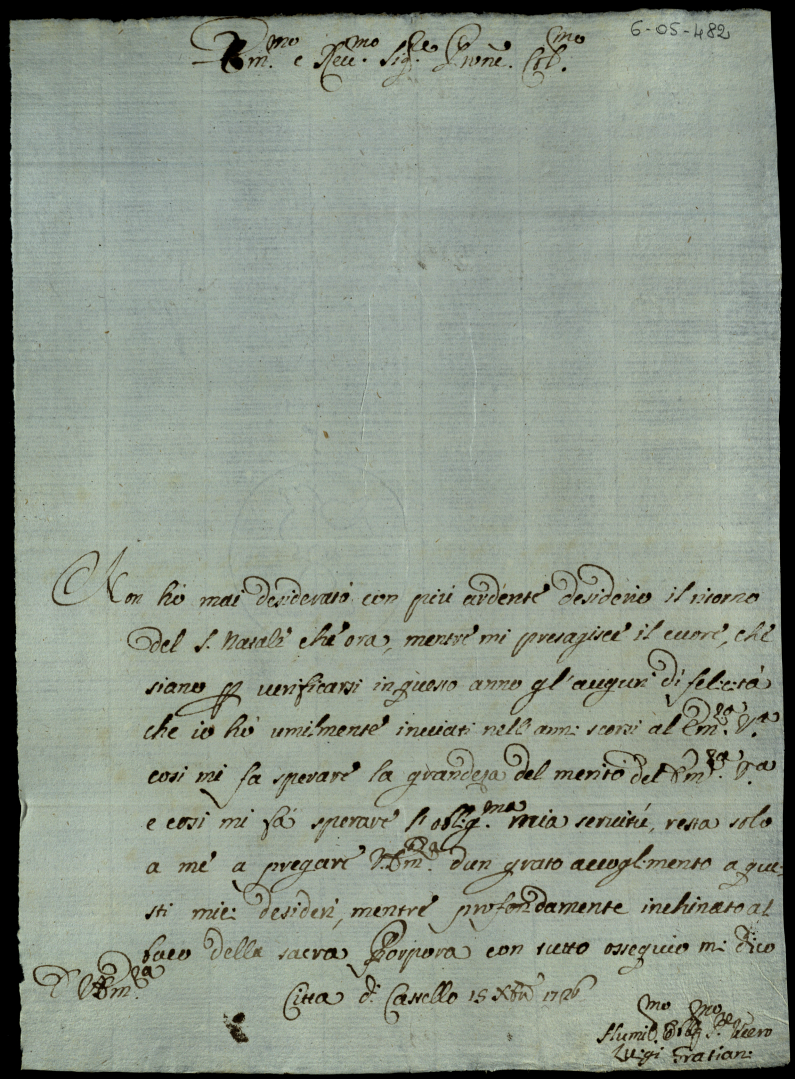 6-05-482
Em.mo e Reu.mo Sig.re Prone. Col.mo
Non hò mai desiderato con più ardente desiderio il ritorno
del S. Natale che ora, mentre mi presagisce il cuore, che
siano p verificarsi in questo anno gl'auguri di felicità
che io hò umilmente inviati nell'anni scorsi al Em.za V.a
così mi fa sperare la grandeza del merito del Em.za V.a
e così mi fà sperare l'oblig.ma mia servitù, resta solo
a me à pregare V. Em.za d'un grato accoglimento a que-
sti miei desideri, mentre profondamente inchinato al
bacio della sacra Porpora con tutto ossequio mi dico
D V. Em.za
Citta di Castello 15 Xbre 1726
Humil.mo Obbl.mo Se.re Vero
Luigi Gratiani